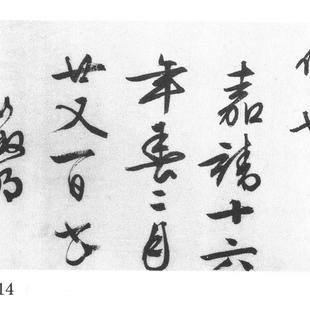 嘉靖十六
年春二月
廿又一日
14